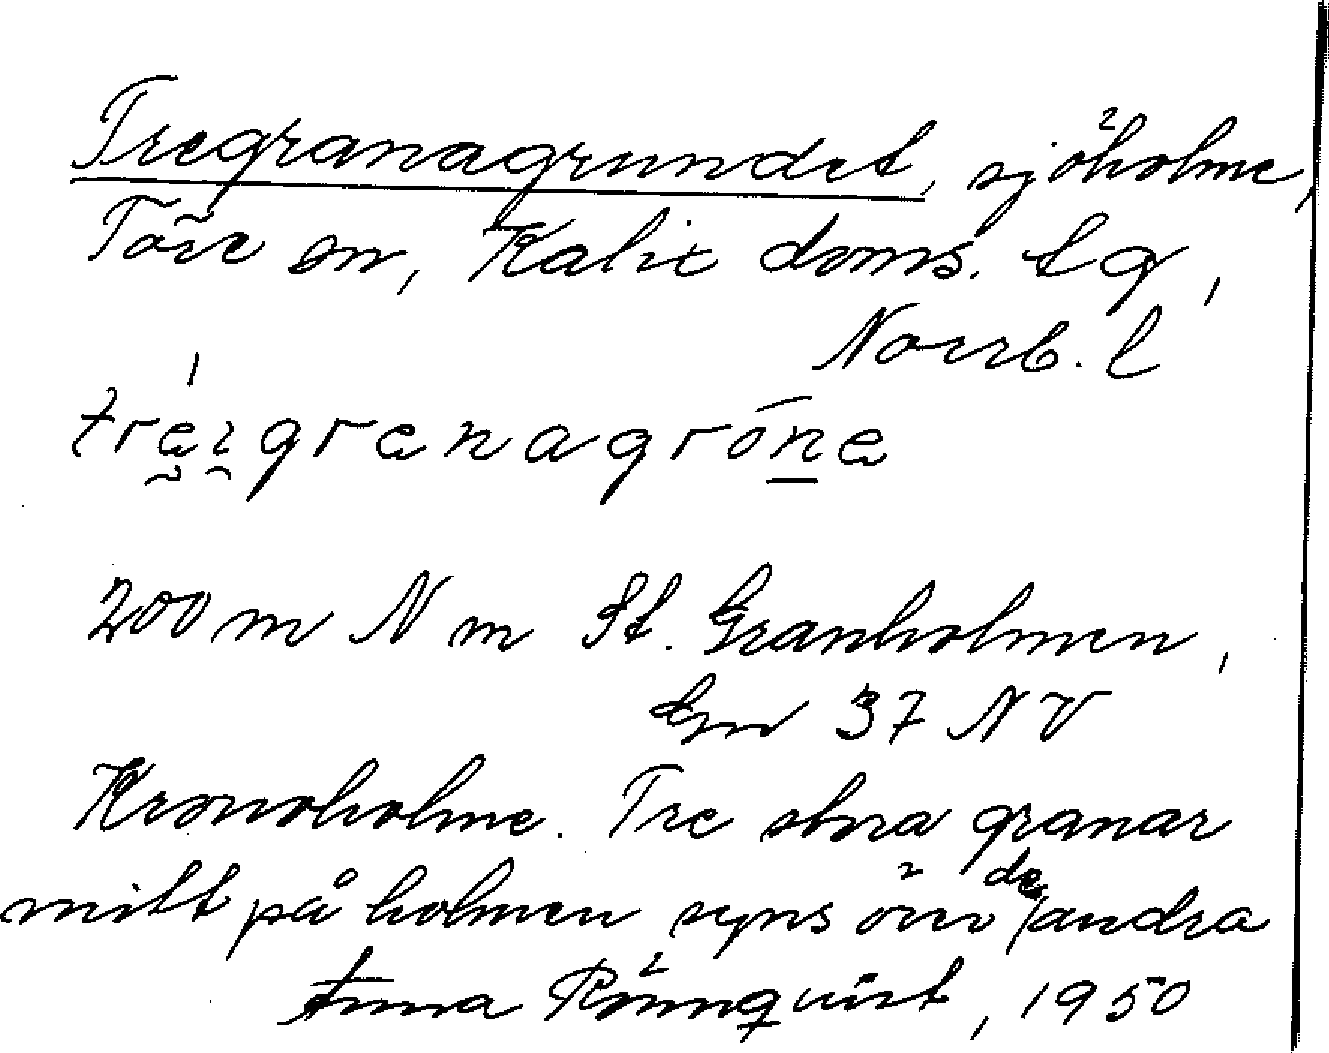 Tregranagrundet, sjöholme,
Töre sn, Kalix doms. tg,
Norrb. l
200 m N m St. Granholmen,
Gnv 37 NV
Kronoholme. Tre stora granar
mitt på holmen syns över de andra
Anna Rönnqvist, 1950